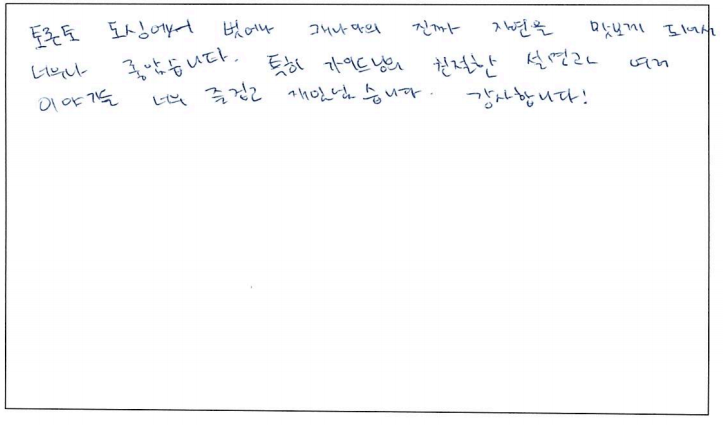 토론토 도심에서 벗어나 캐나다의 진짜 자연을 맛보게 되어서
너무나 좋았습니다. 특히 가이드님의 친절한 설명과 여러
이야기들 너무 즐겁고 재밌었습니다. 감사합니다!